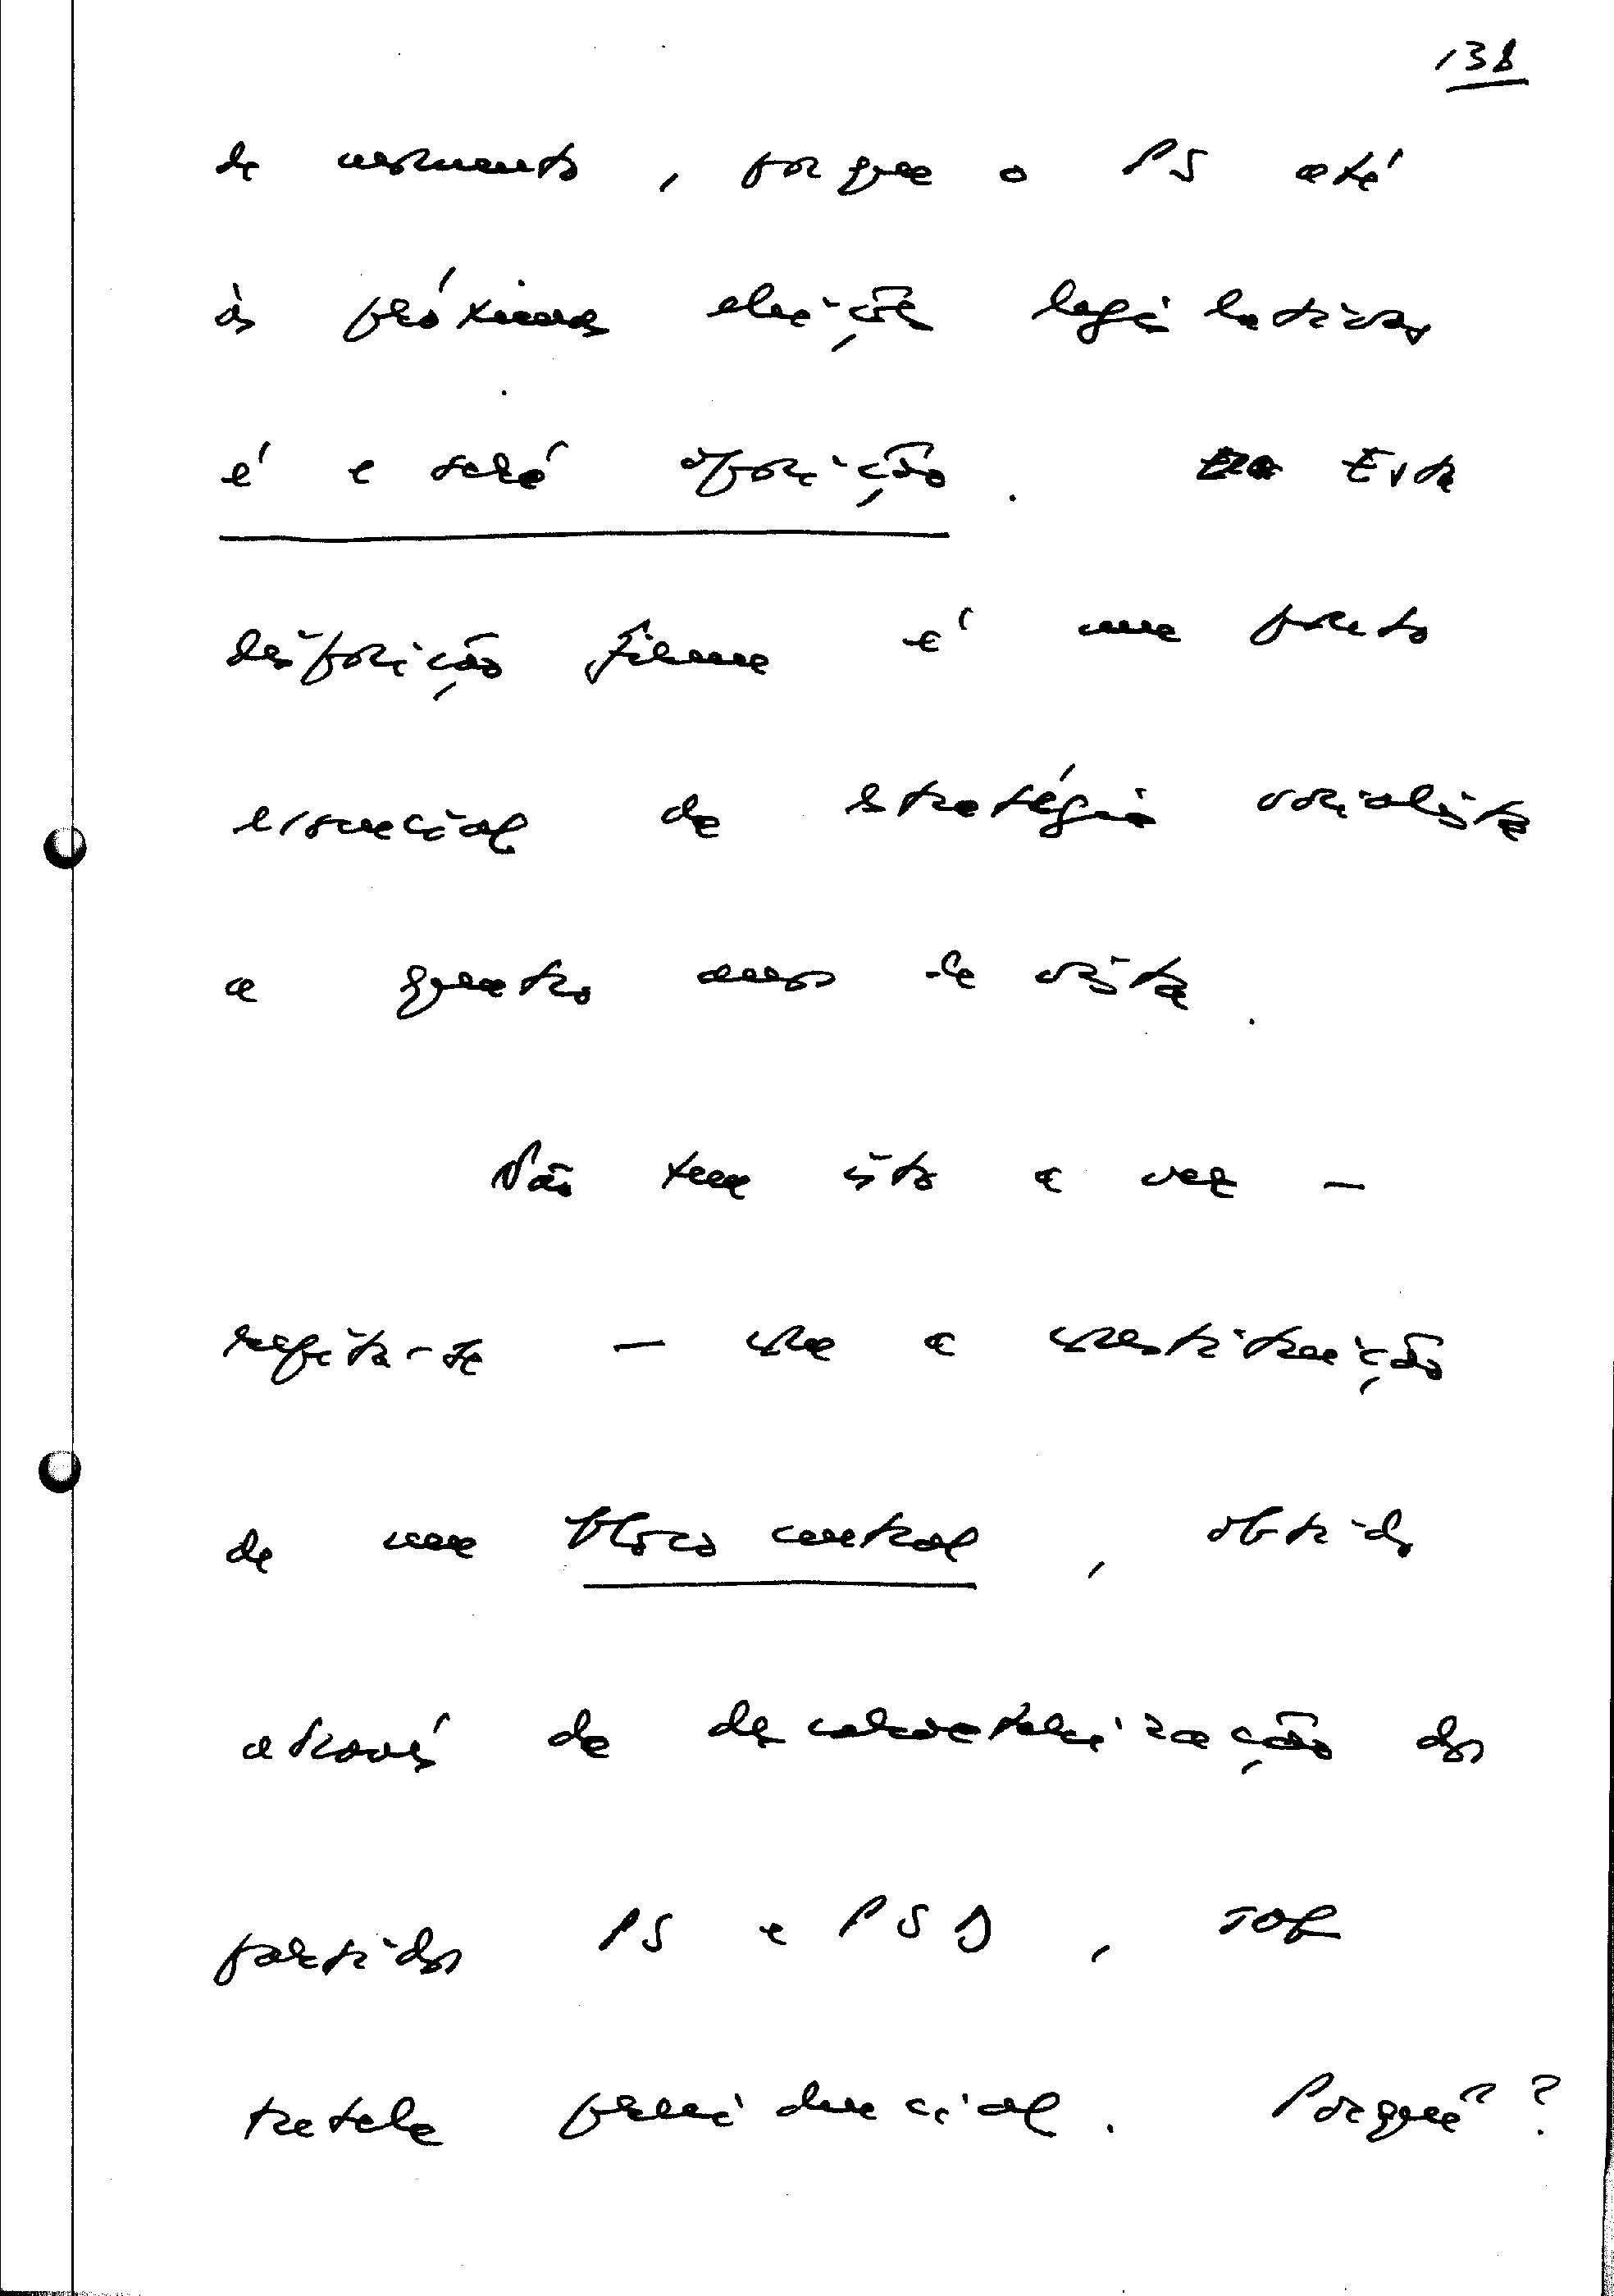 138
de momento, porque o PS até
às próximas eleições legislativas
é e será oposição. Esta
disposição firme é um ponto
essencial da estratégia socialista
a quatro anos de vista.
Não tem isto a ver —
repita-se — com a constituição
de um bloco central, obtido
através da descaracterização dos
partidos PS e PSD, sob
tutela presidencial. Porquê?